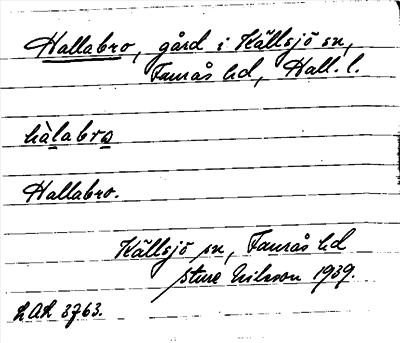 Hallabro, gård i Källsjö sn,
Faurås hd, Hall. l.
hàlabro
Hallabro.
Källsjö sn, Faurås hd
Sture Nilsson 1939.
LAL 3763.